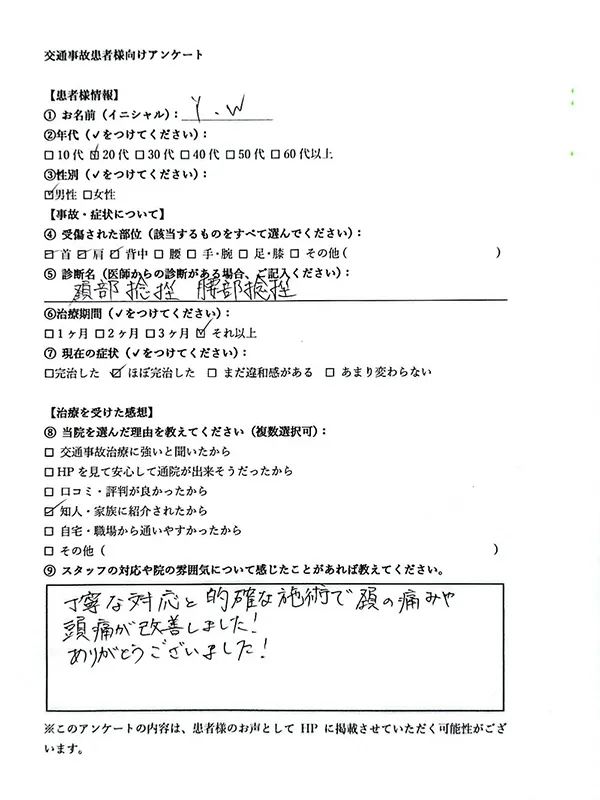 交通事故患者様向けアンケート
【患者様情報】
① お名前（イニシャル）：Y.W
②年代（✓をつけてください）：
□10代 ☑20代 □30代 □40代 □50代 □60代以上
③性別（✓をつけてください）：
☑男性 □女性
【事故・症状について】
④ 受傷された部位（該当するものをすべて選んでください）：
☑首 ☑肩 ☑背中 □腰 □手・腕 □足・膝 □その他（ ）
⑤ 診断名（医師からの診断がある場合、ご記入ください）：
頚部捻挫 腰部捻挫
⑥治療期間（✓をつけてください）：
□1ヶ月 □2ヶ月 □3ヶ月 ☑それ以上
⑦ 現在の症状（✓をつけてください）：
□完治した ☑ほぼ完治した □まだ違和感がある □あまり変わらない
【治療を受けた感想】
⑧ 当院を選んだ理由を教えてください（複数選択可）：
□ 交通事故治療に強いと聞いたから
□HPを見て安心して通院が出来そうだったから
□ 口コミ・評判が良かったから
☑ 知人・家族に紹介されたから
□ 自宅・職場から通いやすかったから
□ その他（ ）
⑨ スタッフの対応や院の雰囲気について感じたことがあれば教えてください。
丁寧な対応と的確な施術で頚の痛みや
頭痛が改善しました！
ありがとうございました！
※このアンケートの内容は、患者様のお声としてHPに掲載させていただく可能性がござ
います。